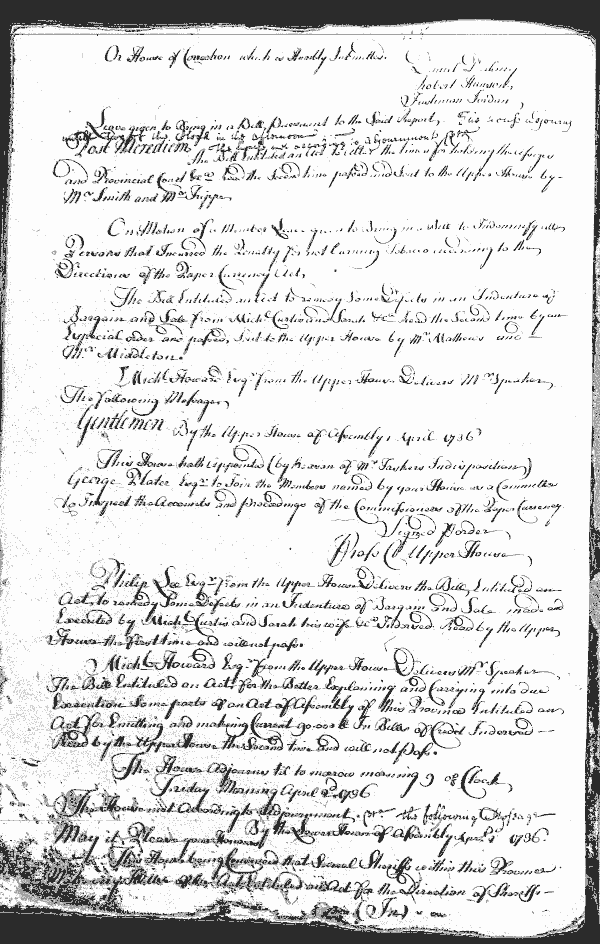 Or House of Correction which is Humbly Submitted.
Robert
Jordan
Leave given to Bring in a Bill, Pursuant to the Said Report, This House adjourns
in the afternoon
Post Meridiem The House met according to adjournment
The Bill Entituled an Act to alter the times for holding the
and Provincial Court &ca. read the Second time passed and Sent to the Upper House by
Mr. Smith and Mr. Trippe
On Motion of a Member Leave given to bring in a Bill to Indemnify all
Persons that Incurred the Penalty for not burning Tobacco according to the
Directions of the Paper Currency Act,
The Bill Entituled an Act to remedy Some Defects in an Indenture of
Bargain and Sale from Michl. Curtis and Sarah &c. Read the Second time by an
Especial order and passed, Sent to the Upper House by Mr. Mathews and
Mr. Middleton.
Michl. Howard Esqr. from the Upper House Delivers Mr. Speaker
The Following Message,
Gentlemen By the Upper House of Assembly April 1736
This House hath Appointed (by Reason of Mr. Taskers Indisposition)
George Plater Esqr. to Join the Members named by your House as a Committee
to Inspect the Accounts and proceedings of the Commissioners of the Paper Currency.
Signed p order
Ross Cl Upper House
Philip Lee Esqr. from the Upper House Delivers the Bill, Entituled an
Act, to remedy Some Defects in an Indenture of Bargain and Sale made and
Executed by Michl. Curtis and Sarah his wife &c. Indorsed. Read by the Upper
House the First time and will not pass.
Michl. Howard Esqr. from the Upper House Delivers Mr. Speaker
The Bill Entituled an Act, for the Better Explaining and Carrying into due
Execution Some parts of an Act of Assembly of this Province Entituled an
Act for Emitting and making Current 90.000 £ In Bills of Credit Indorsed
Read by the Upper House the Second time and will not Pass.
The House Adjourns til to morrow morning 9 of Clock
Friday Morning April 2d. 1736
The House met According to adjournment, the following Message
By the Lower House of Assembly April 2 1736.
May it Please your Honours
This House being Convinced that Several Sheriffs within this Province
of the Act Entituled an Act for the Direction of Sheriffs